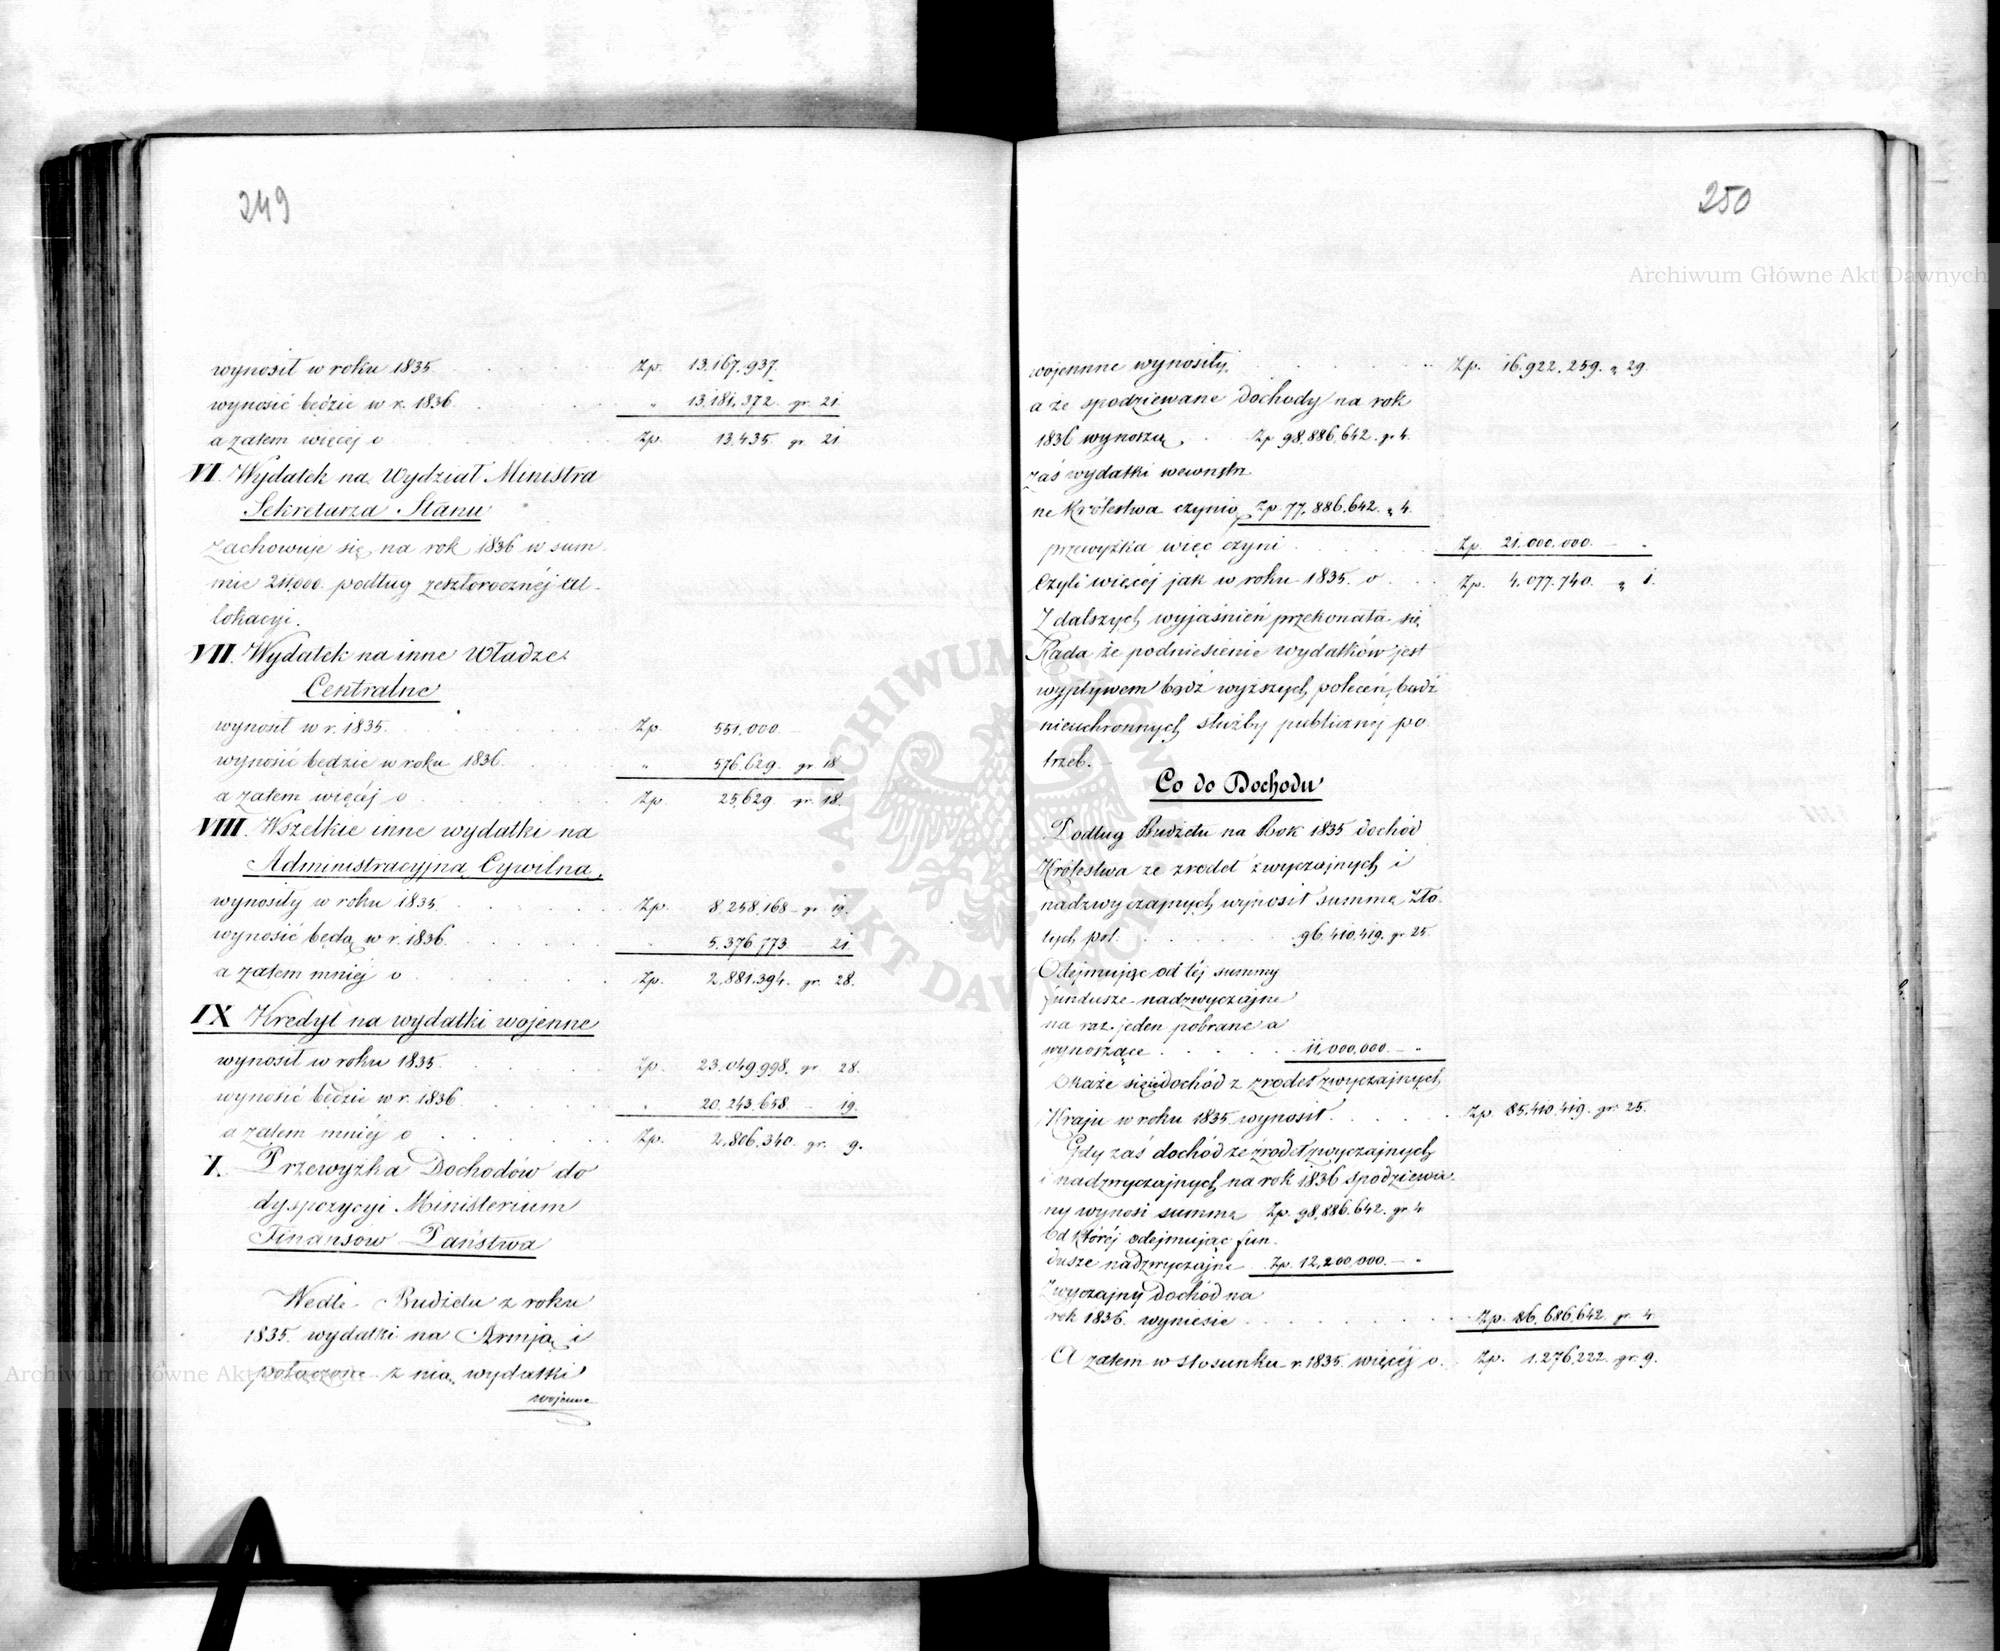 249
wynosił w roku 1835 . . . . . Zp. 13,167,937.
wynosić będzie w r. 1836. . . . . „ 13,181,372. gr. 21.
a zatem więcej o . . . . . Zp. 13,435. gr. 21
VI. Wydatek na Wydział Ministra
Sekretarza Stanu
zachowuje się na rok 1836 w sum-
mie podług zeszłorocznéj al-
lokacyi.
VII. Wydatek na inne Władze
Centralne
wynosił w r. 1835. . . . . Zp. 551,000. —
wynosić będzie w roku 1836. . . . „ 576,629. gr. 18.
a zatem więcéj o . . . . . Zp. 25,629 gr. 18.
VIII. Wszelkie inne wydatki na
Administracyjną Cywilną,
wynosiły w roku 1835 . . . . . Zp. 8,258,168 – gr. 19.
wynosić będą w r. 1836. . . . . „ 5,376,773. 21.
a zatem mniéj o . . . . . Zp. 2,881,394. gr. 28.
IX Kredyt na wydatki wojenne
wynosił w roku 1835. . . . . Zp. 23,049,998. gr. 28.
wynosić będzie w r. 1836. . . . . „ 20,243,658 — 19.
a zatem mniéj o . . . . . Zp. 2,806,340. gr. 9.
X. Przewyżka Dochodów do
dyspozycyi Ministerium
Finansów Państwa
Wedle Budżetu z roku
1835. wydatki na Armją i
połączone z nią wydatki
wojenne
250
wojennne wynosiły . . . . . Zp. 16,922,259. „ 29.
a że spodziewane dochody na rok
1836 wynoszą . . Zp. 98,886,642. gr. 4.
zaś wydatki wewnętrz
ne Królestwa czynią Zp. 77,886,642. „ 4.
przewyżka więc czyni . . . . . Zp. 21,000,000. — „
Czyli więcéj jak w roku 1835. o . . . Zp. 4,077,740. „ 1.
Z dalszych wyjaśnień przekonała się
Rada że podniesienie wydatków jest
wypływem bądź wyższych poleceń, bądź
nieuchronnych służby publicznej po
trzeb. —
Co do Dochodu
Podług Budżetu na Rok 1835 dochód
Królestwa ze zrodeł zwyczajnych i
nadzwyczajnych wynosił summę Zło-
tych pol. . . . . . 96,410,419. gr. 25.
Odejmując od téj summy
fundusze nadzwyczajne
na raz jeden pobrane a
wynoszące . . . . . 11,000,000. — „
Okaże się iż dochód z zrodeł zwyczajnych
Kraju w roku 1835 wynosił . . . . . Zp. 85,410,419. gr. 25.
Gdy zaś dochód ze źrodeł zwyczajnych
i nadzwyczajnych na rok 1836 spodziewa-
ny wynosi summę Zp. 98,886,642. gr. 4
od któréj odejmując fun-
dusze nadzwyczajne Zp. 12,200,000. — „
Zwyczajny dochód na
rok 1836. wyniesie . . . . . Zp. 86,686,642. gr. 4.
A zatem w stosunku r. 1835. więcéj o . Zp. 1,276,222. gr. 9.
Archiwum Główne Akt Dawnych
Archiwum Główne Akt Dawnych
ARCHIWUM GŁÓWNE AKT DAWNYCH